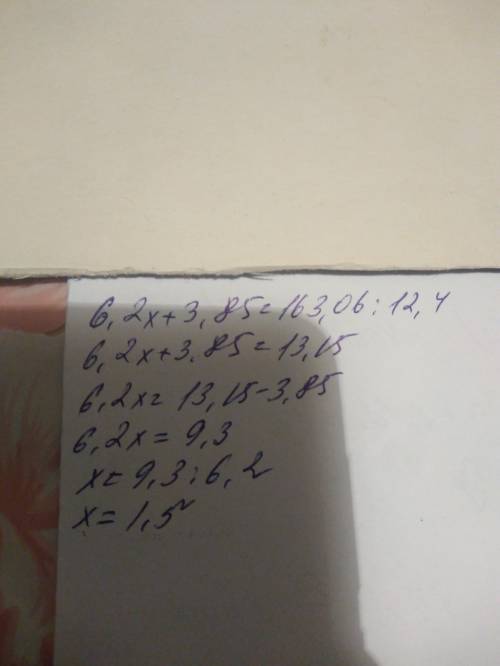 6,2x+3,85=163,06:12,4
6,2x+3,85=13,15
6,2x=13,15-3,85
6,2x=9,3
x=9,3:6,2
x=1,5